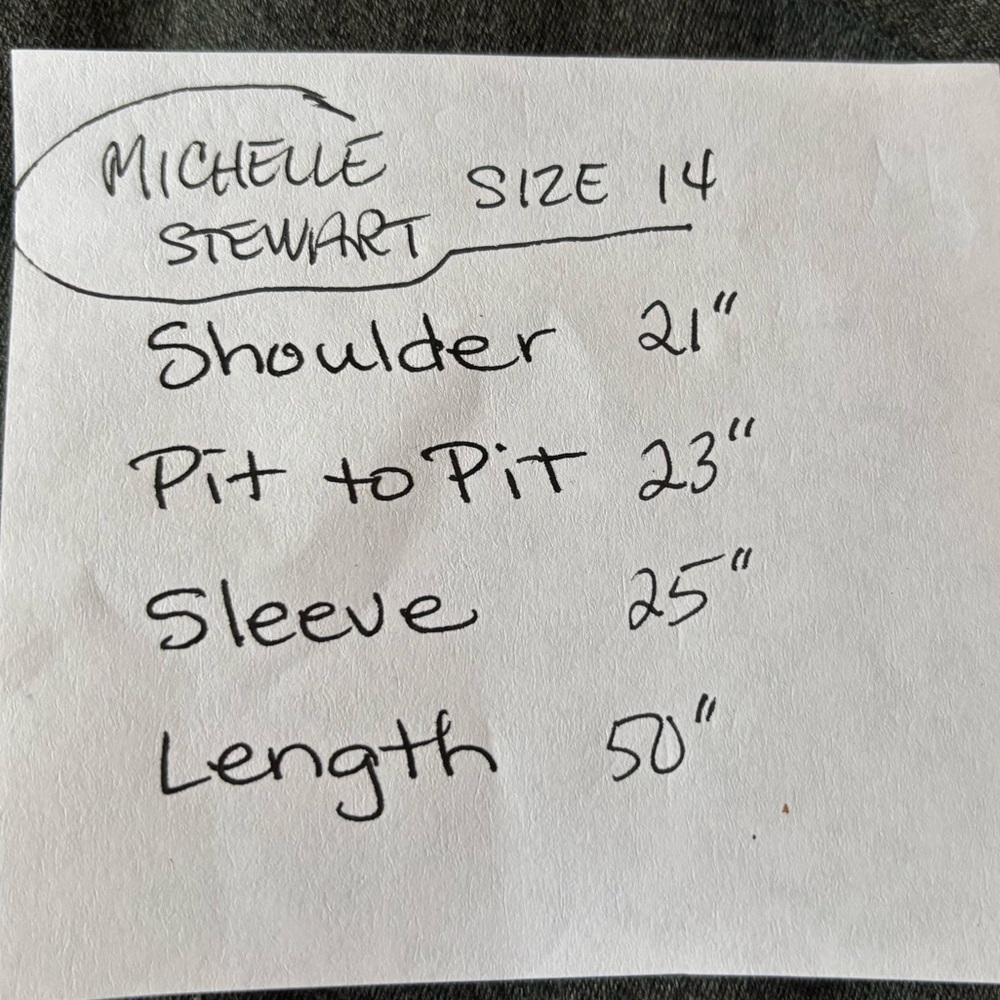 MICHELLE
STEWART SIZE 14
Shoulder 21"
Pit to Pit 23"
Sleeve 25"
Length 50"